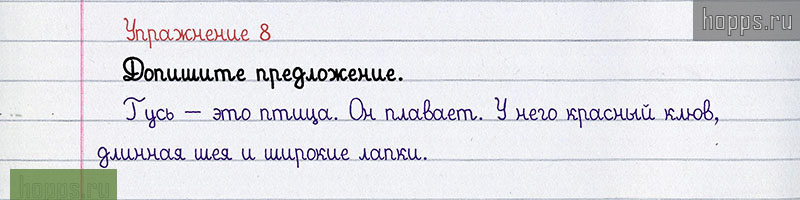 Упражнение 8
hopps.ru
Допишите предложение.
Гусь — это птица. Он плавает. У него красный клюв,
длинная шея и широкие лапки.
hopps.ru